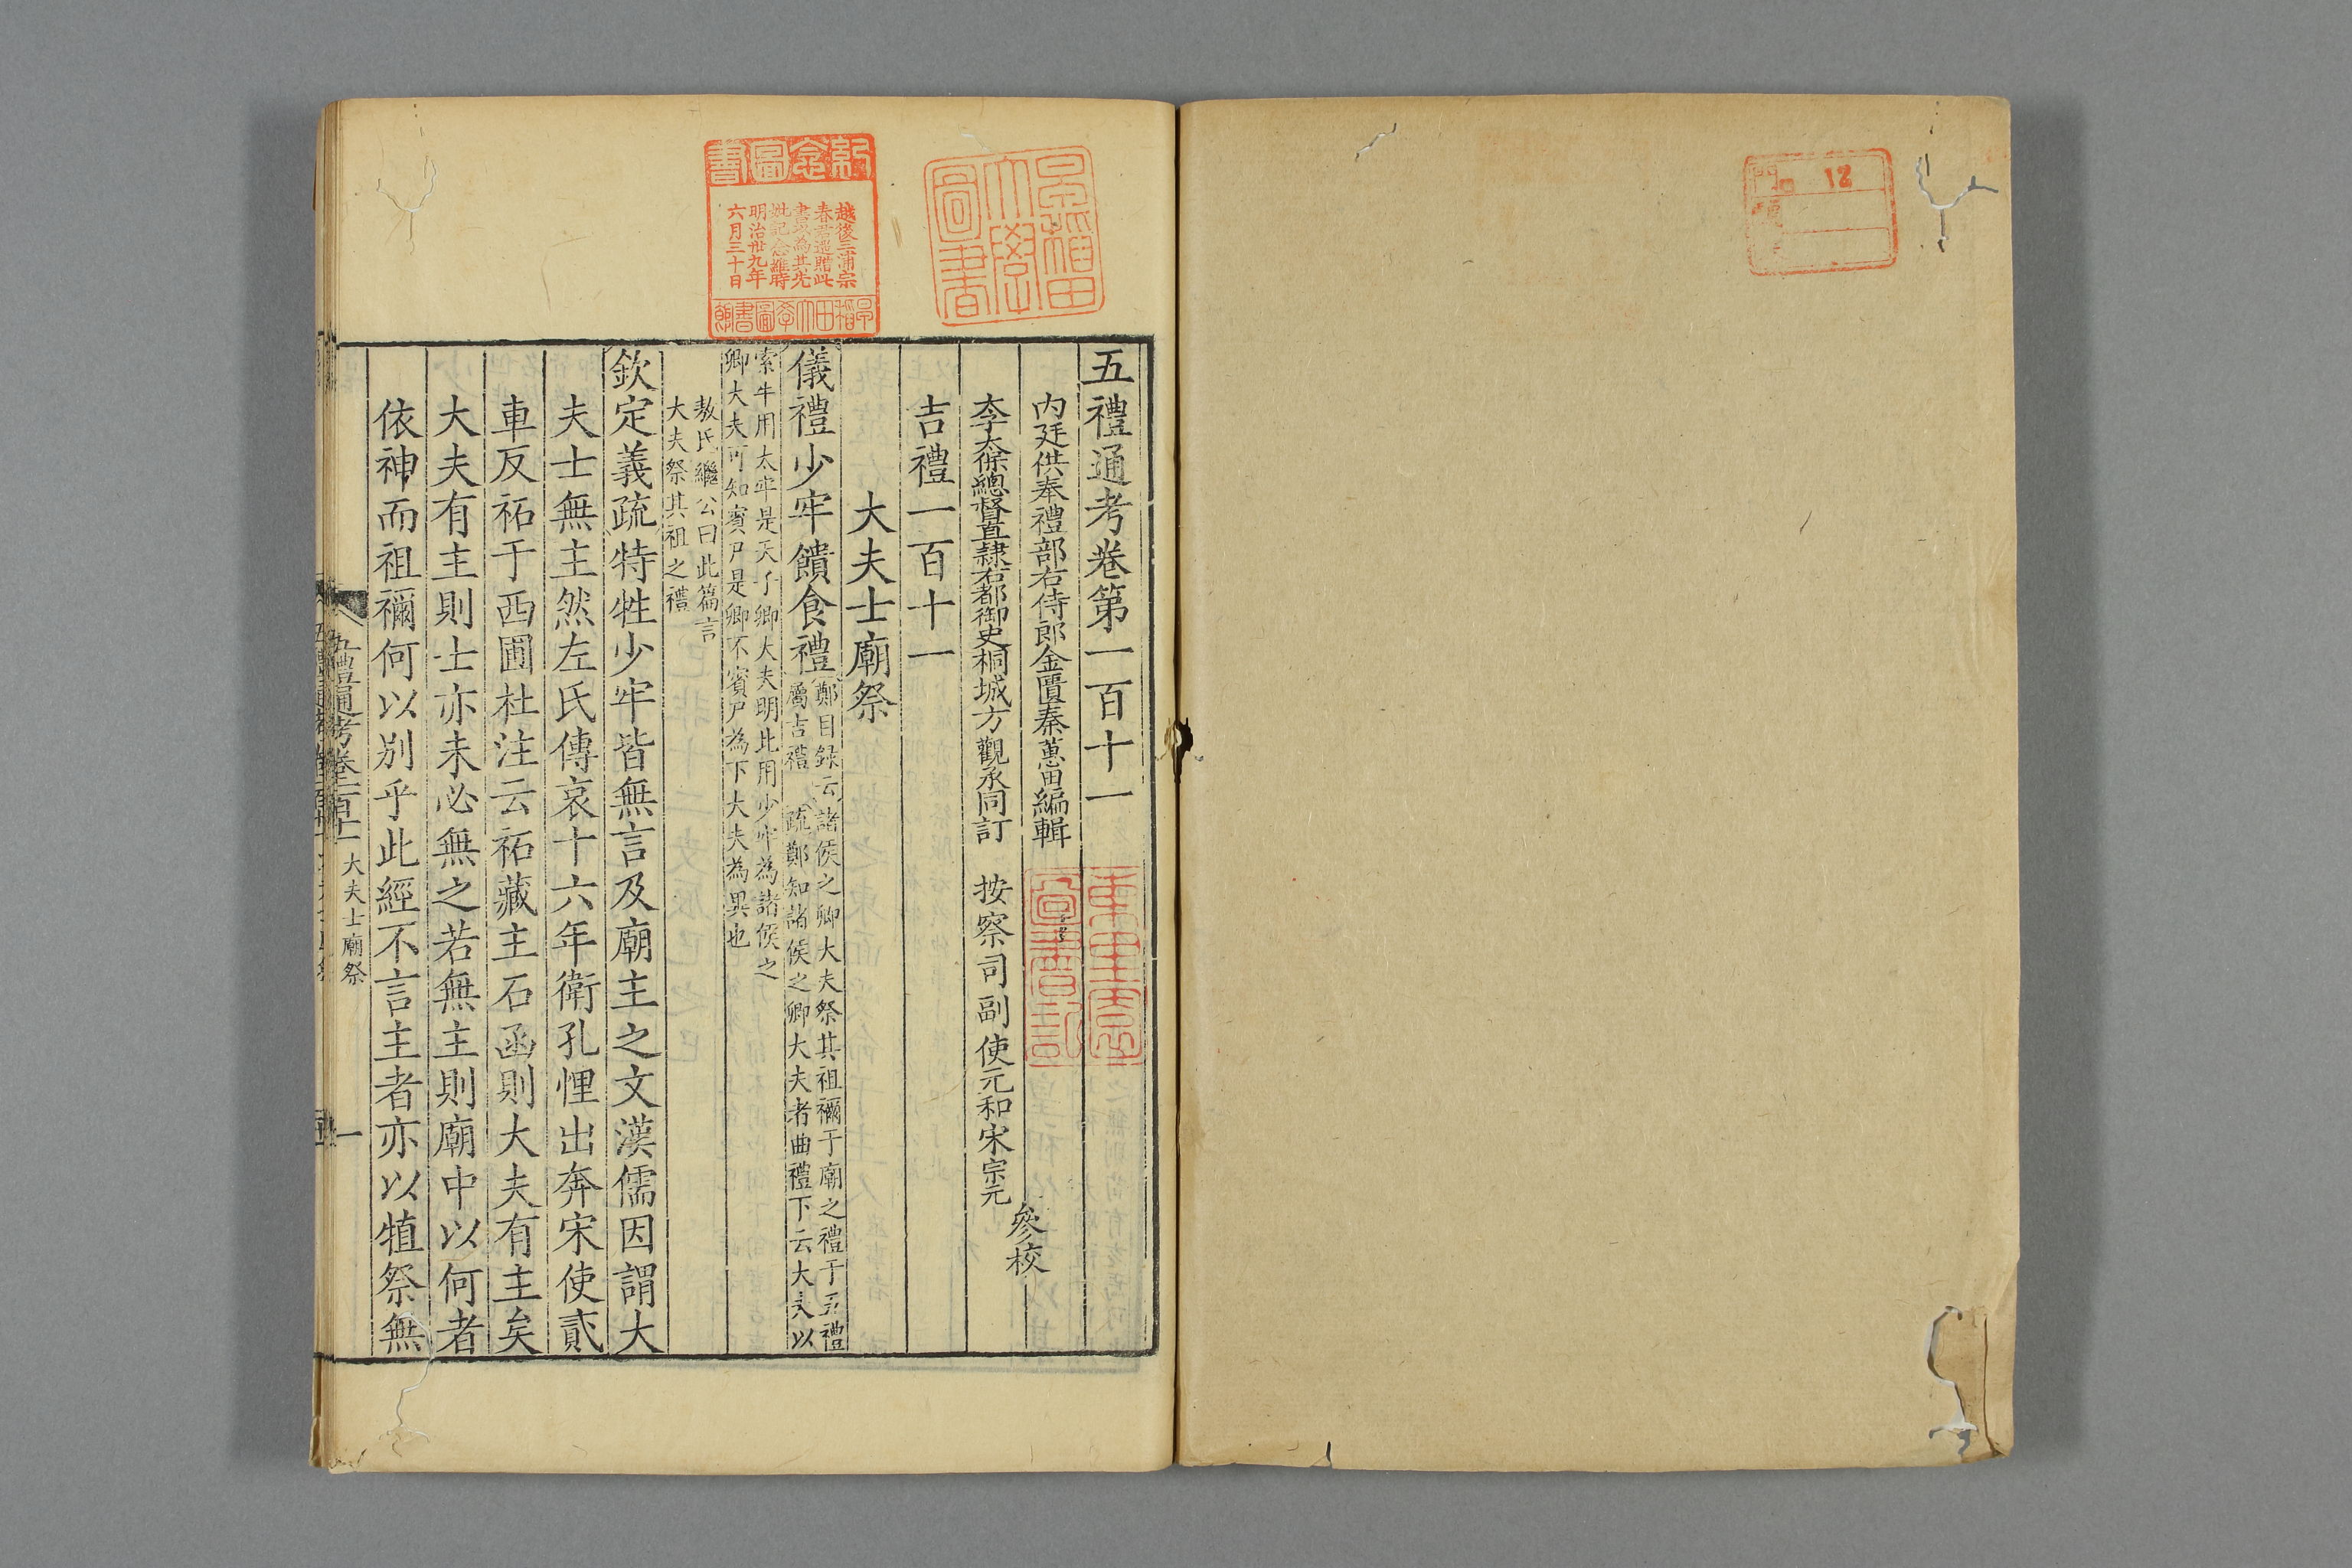 門 12
早稲田大學圖書
紀念圖書
越後三浦宗
春君遥贈此
書以為其先
妣記念維時
明治卅九年
六月三十日
早稲田大學圖書館
五禮通考卷第一百十一
內廷供奉禮部右侍郎金匱秦蕙田編輯
李太保總督直隸右都御史桐城方觀承同訂 按察司副使元和宋宗元
參校
吉禮一百十一
大夫士廟祭
儀禮少牢饋食禮
鄭目録云諸侯之卿大夫祭其祖禰于廟之禮于五禮
屬吉禮 疏鄭知諸侯之卿大夫者曲禮下云大夫以
索牛用太牢是天子卿大夫明此用少牢為諸侯之
卿大夫可知賓尸是卿不賓尸為下大夫為異也
敖氏繼公曰此篇言
大夫祭其祖之禮
欽定義疏特牲少牢皆無言及廟主之文漢儒因謂大
夫士無主然左氏傳哀十六年衛孔悝出奔宋使貳
車反祏于西圃杜注云祏藏主石函則大夫有主矣
大夫有主則士亦未必無之若無主則廟中以何者
依神而祖禰何以别乎此經不言主者亦以殖祭無
五禮通考卷一百十一 大夫士廟祭 一